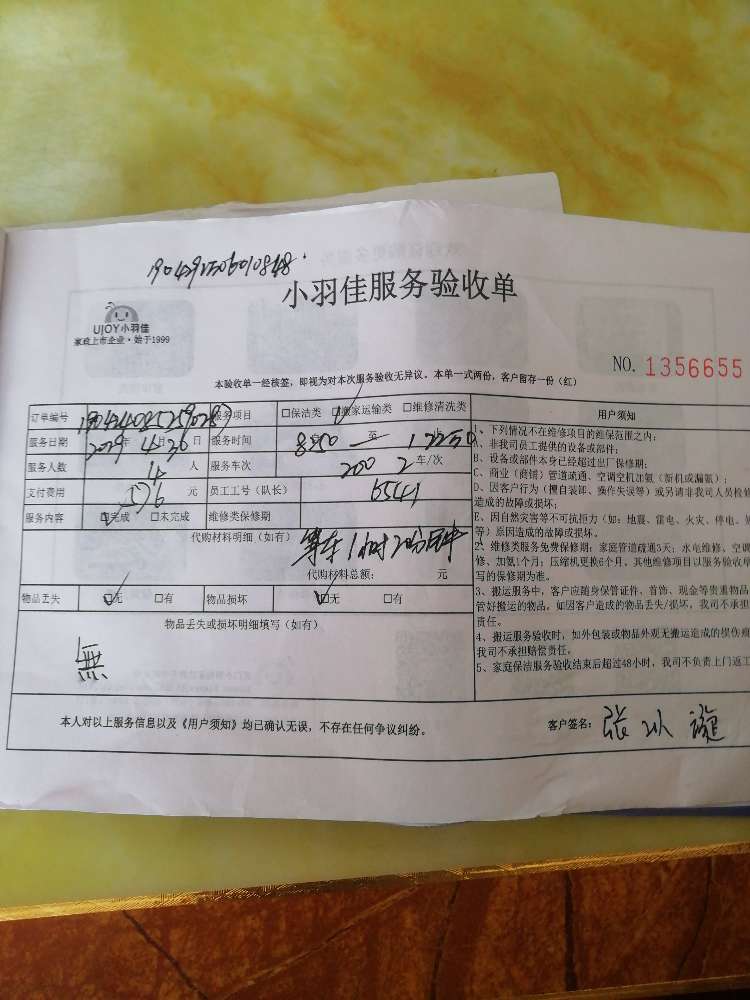 小羽佳服务验收单
UJOY小羽佳
家政上市企业·始于1999
NO. 1356655
本验收单一经核签，即视为对本次服务验收无异议。本单一式两份，客户留存一份（红）
订单编号 服务项目 □保洁类 □搬家运输类 □维修清洗类
服务日期 年 月 日 服务时间 8:50 至 12:50
服务人数 人 服务车次 2 车/次
支付费用 576 元 员工工号（队长） 6541
服务内容 □完成 □未完成 维修类保修期
代购材料明细（如有） 等车1小时20分钟
代购材料总额： 元
物品丢失 □无 □有 物品损坏 □无 □有
物品丢失或损坏明细填写（如有）
無
用户须知
1、下列情况不在维修项目的维保范围之内：
A、非我司员工提供的设备或部件；
B、设备或部件本身已经超过出厂保修期；
C、商业（商铺）管道疏通、空调空机加氨（新机或漏氨）；
D、因客户行为（擅自装卸、操作失误等）或另请非我司人员检修
造成的故障或损坏；
E、因自然灾害等不可抗拒力（如：地震、雷电、火灾、停电、
等）原因造成的故障或损坏。
2、维修类服务免费保修期：家庭管道疏通3天；水电维修、空调
修、加氨1个月；压缩机更换6个月，其他维修项目以服务验收单
写的保修期为准。
3、搬运服务中，客户应随身保管证件、首饰、现金等贵重物品
管好搬运的物品。如因客户造成的物品丢失/损坏，我司不承担
责任。
4、搬运服务验收时，如外包装或物品外观无搬运造成的损伤痕
我司不承担赔偿责任。
5、家庭保洁服务验收结束后超过48小时，我司不负责上门返工
本人对以上服务信息以及《用户须知》均已确认无误，不存在任何争议纠纷。
客户签名：张